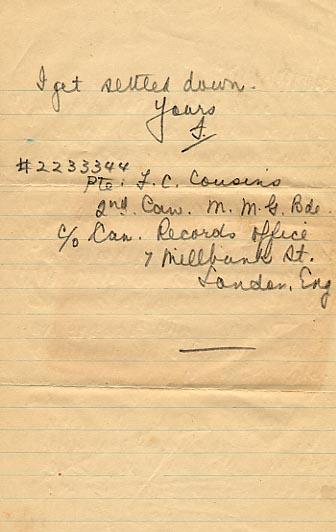 I get settled down.
Yours
F.
#2233344
Pte: F. C. Cousins
2nd. Can. M. M. G. Bde.
c/o Can. Records Office
7 Millbank St.
London, Eng